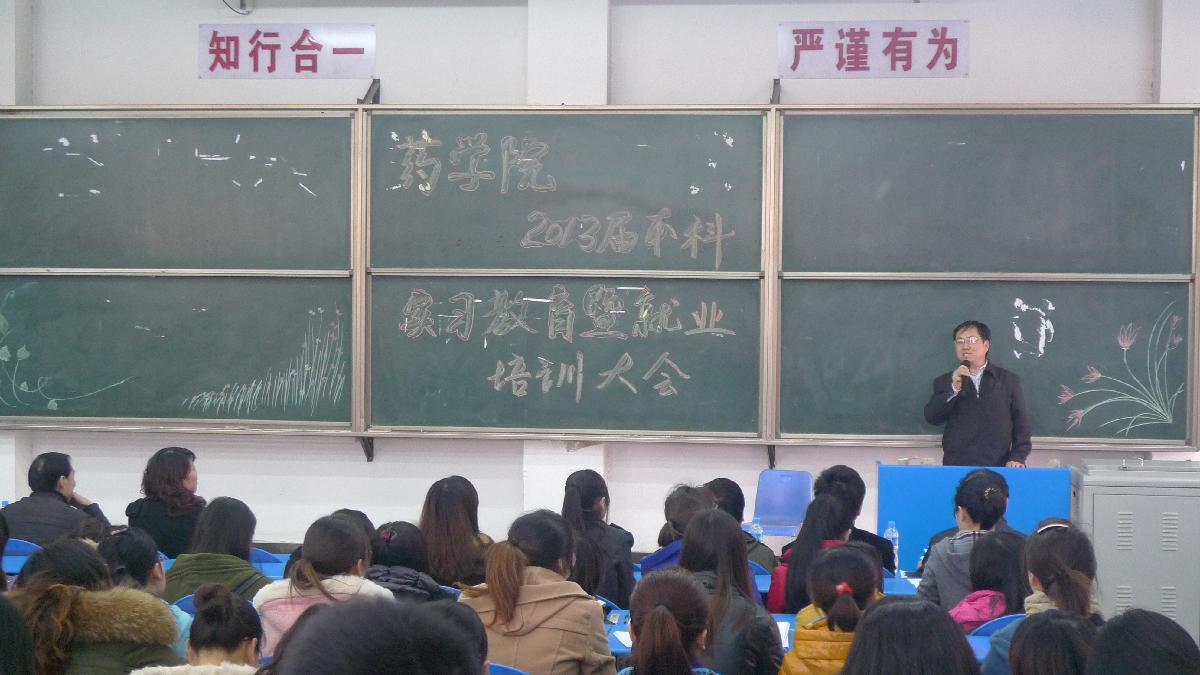 知行合一
严谨有为
药学院
2013届本科
实习教育暨就业
培训大会